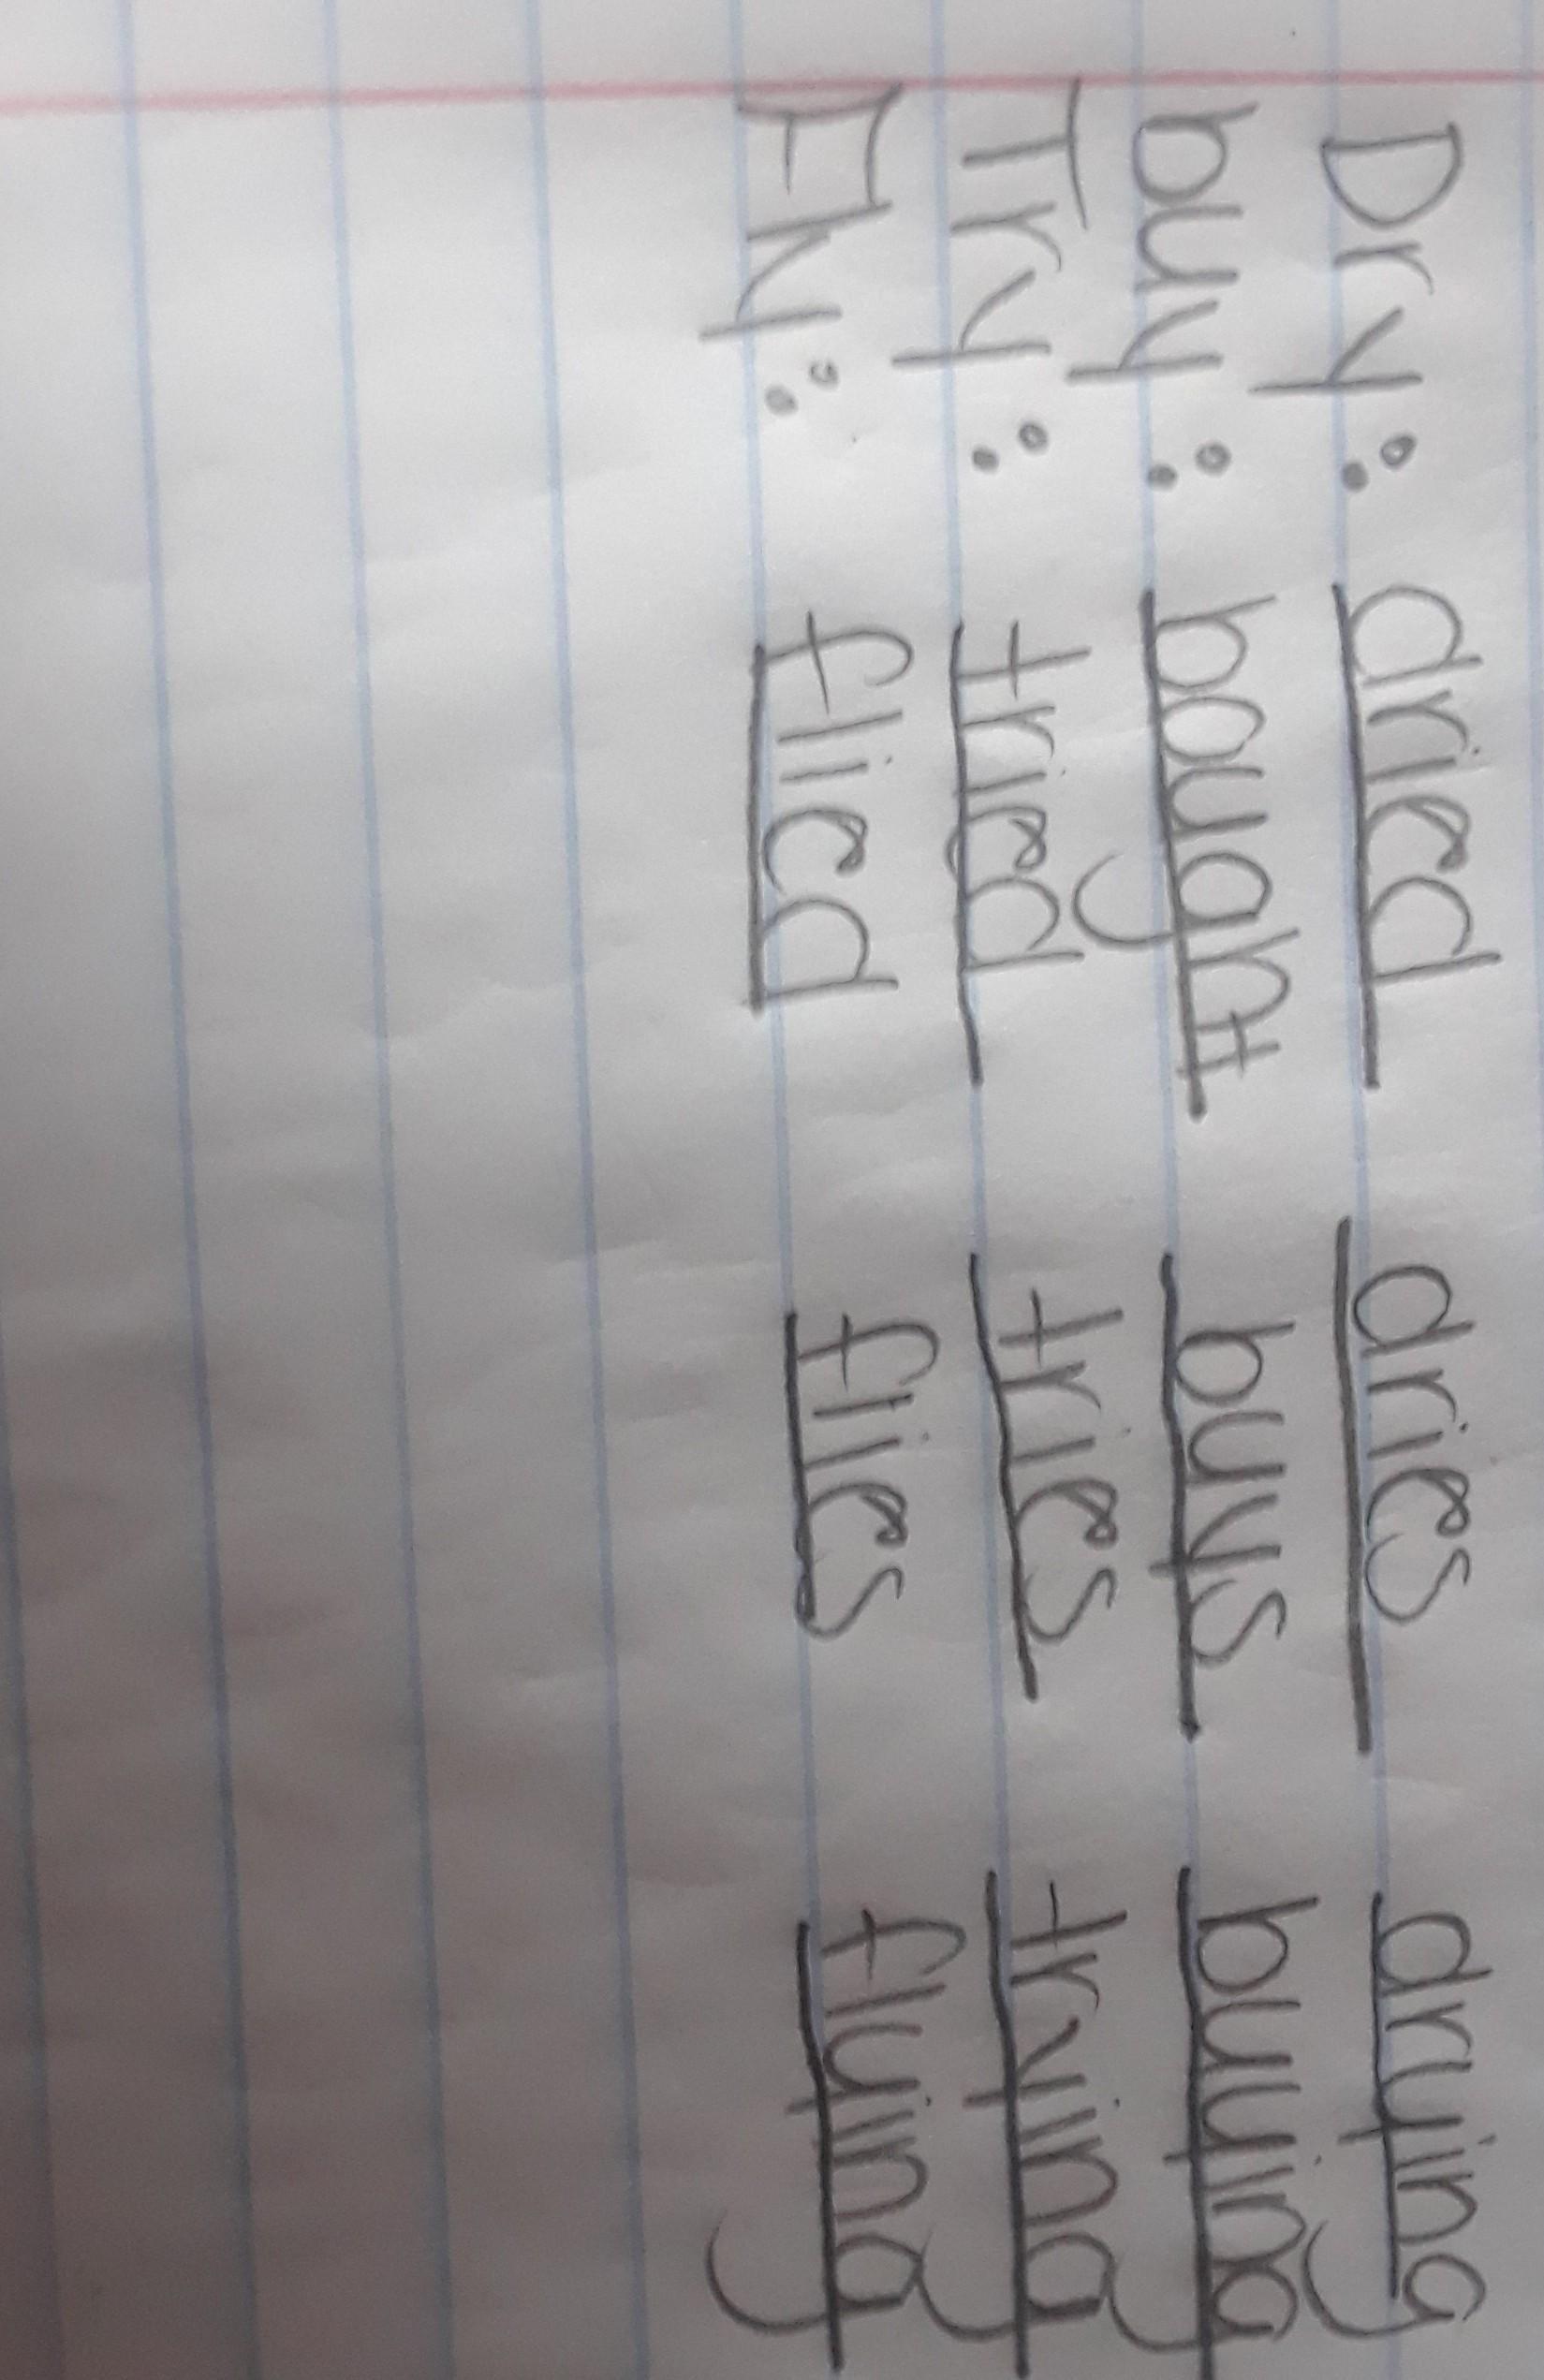 Dry: dried dries drying
buy: bought buys buying
Try: tried tries trying
Fly: flied flies flying